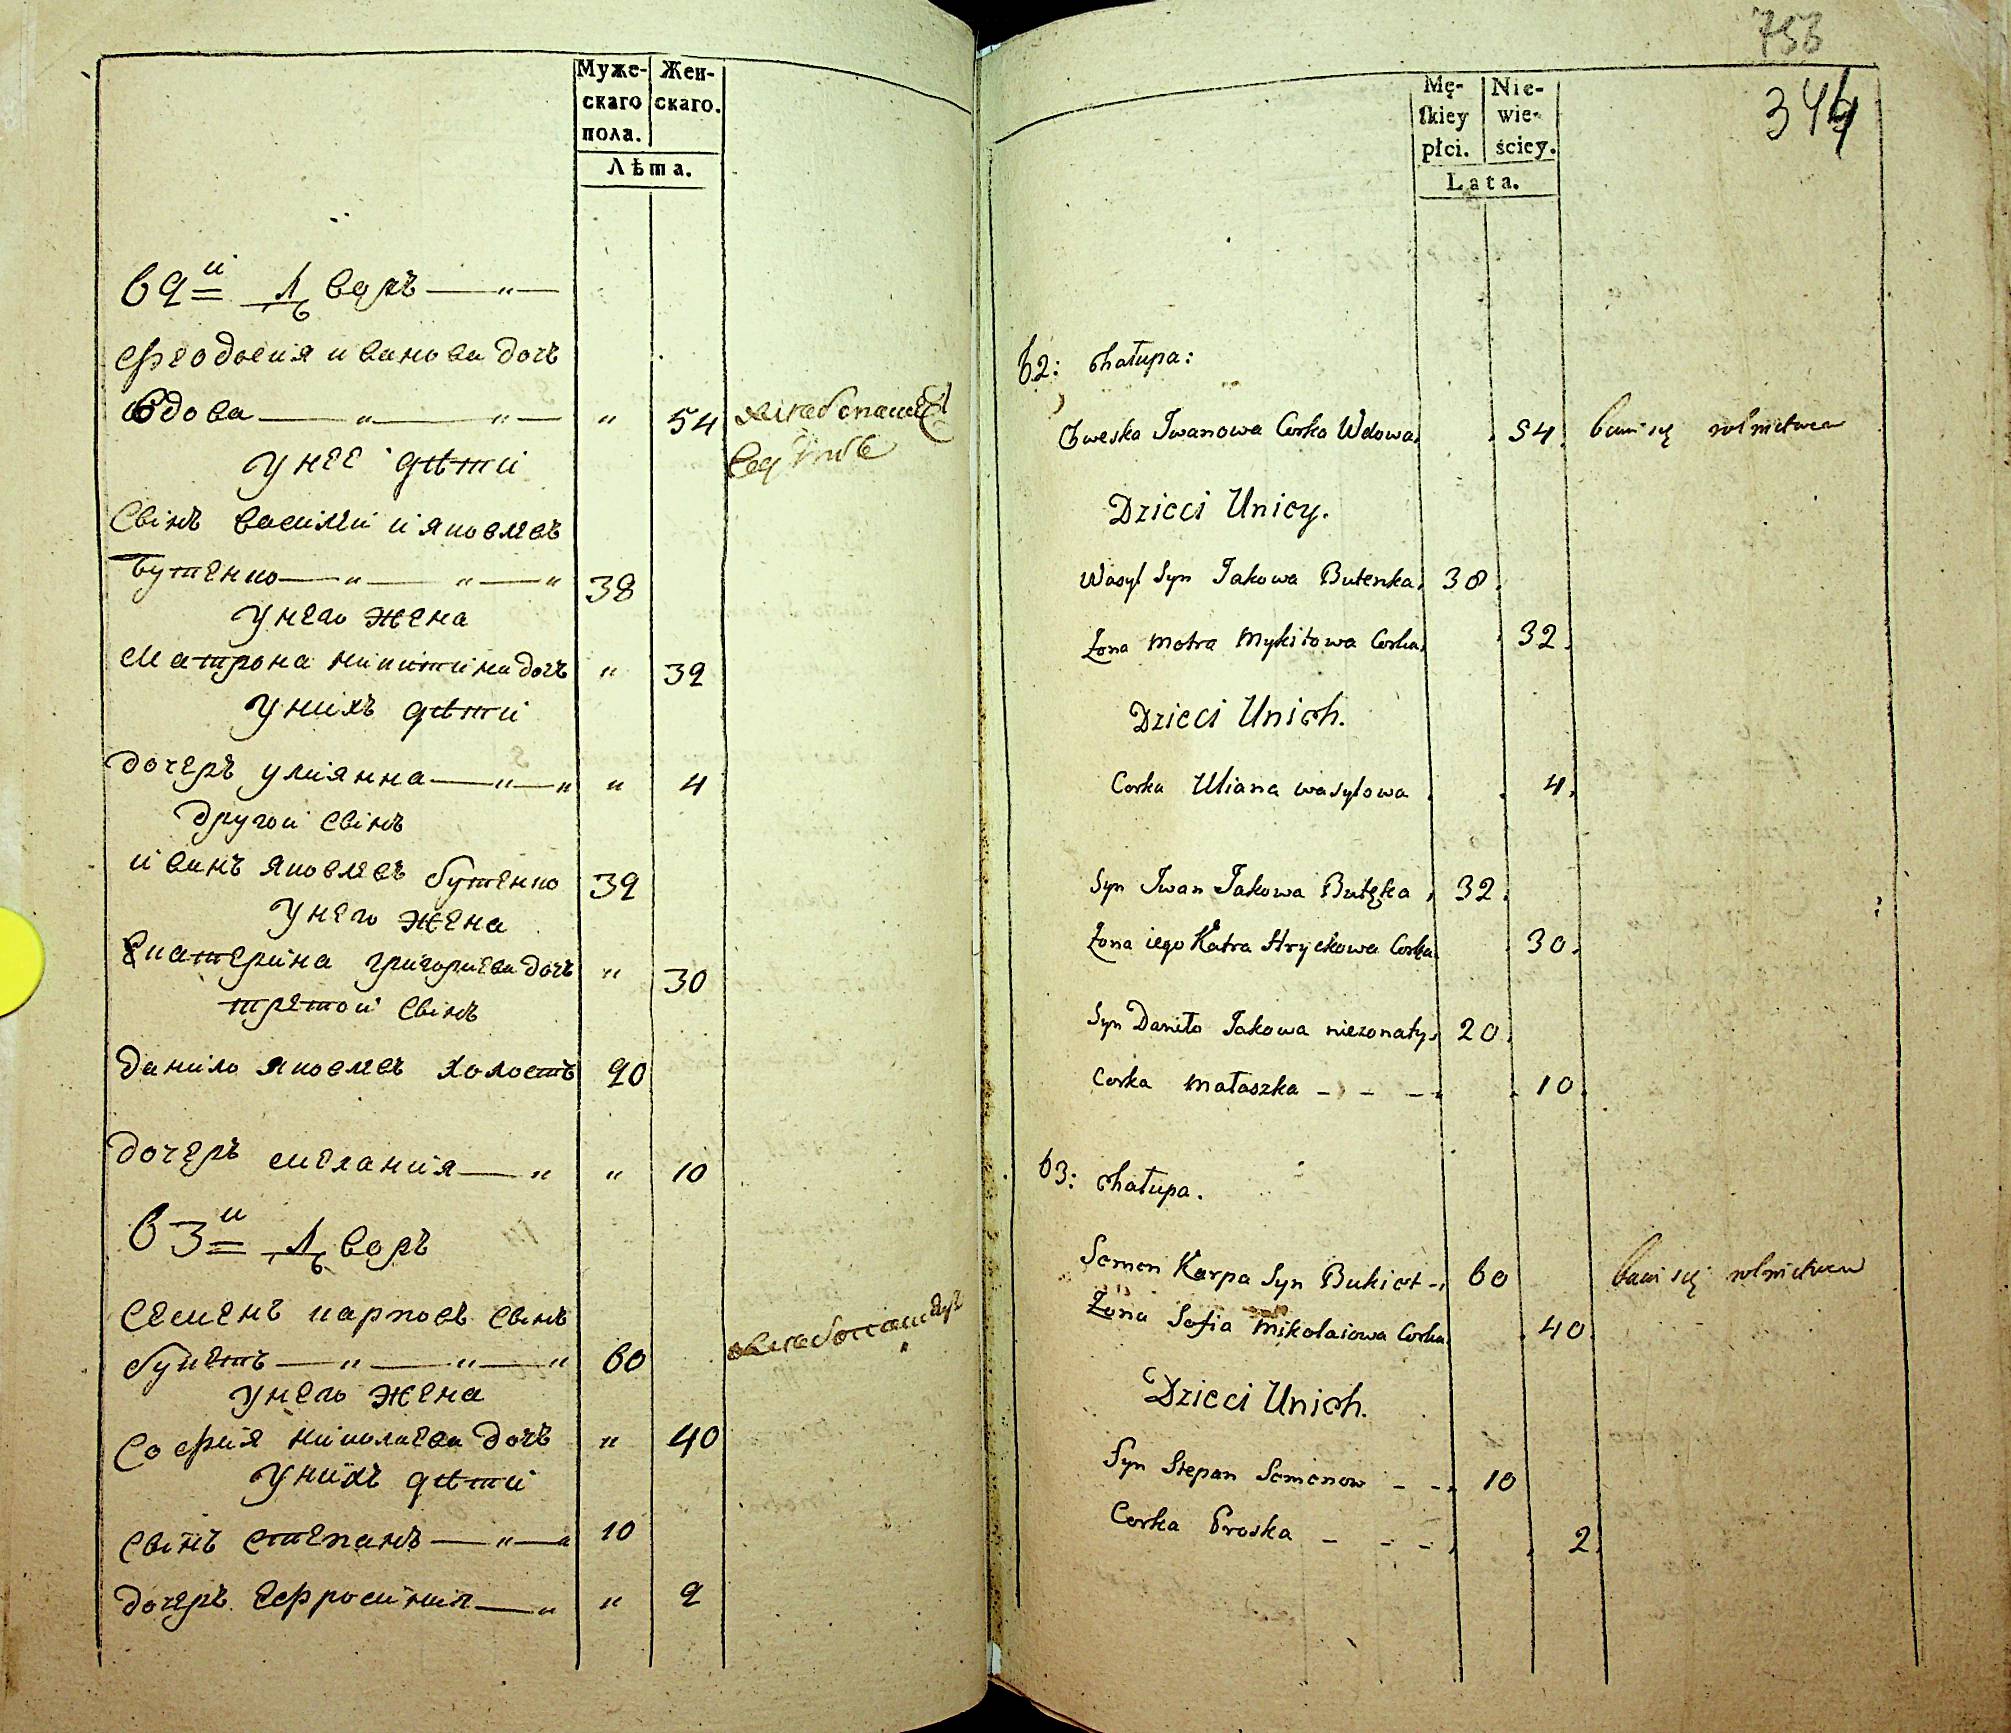 Муже-
скаго
пола.
Жен-
скаго.
Лѣта.
62й Дворъ — „ —
Феодосия иванова дочь
вдова — „ — „ — „ 54 хлебопаш
У нее дѣти
Свінъ василий ияковлевъ
Бутенко — „ — „ — „ 38
У него жена
Матрона никитина дочь „ 32
У нихъ дѣти
дочеръ улиянна — „ — „ „ 4
другой свінъ
иванъ яковлевъ бутенко 32
У него жена
Екатерина григориева дочь „ 30
третой свінъ
данило яковлевъ холостъ 20
дочеръ мелания — „ „ 10
63й Дворъ
Семенъ карповъ свінъ
букетъ — „ — „ — „ 60 хлебопашецъ
У него жена
София николаева дочь „ 40
У нихъ дѣти
свінъ степанъ — „ — „ 10
дочеръ Ефросиния — „ „ 2
753
344
Mę-
ſkiey
płci.
Nie-
wie-
ściey.
Lata.
62: Chałupa:
Chweska Iwanowa Corka Wdowa. 54. bawi się rolnictwem
Dzieci Unicy.
Wasyl Syn Jakowa Butenka. 38.
Żona Motra Mykitowa Corka. 32.
Dzieci Unich.
Corka Uliana wasylowa . 4.
Syn Iwan Jakowa Butęka . 32.
Żona iego Katra Hryckowa Corka. 30.
Syn Daniło Jakowa nieżonaty. 20.
Corka Małaszka - - - . 10.
63: Chałupa.
Semen Karpa Syn Bukiet - . 60 bawi się rolnictwem
Żona Sofia Mikolaiowa Corka. 40.
Dzieci Unich.
Syn Stepan Semenow - - . 10
Corka Proska - - - . 2.